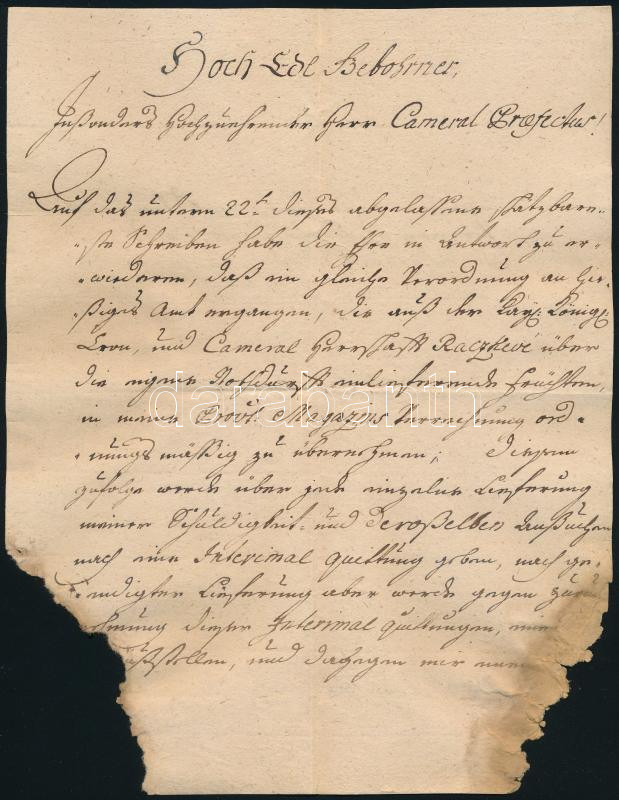 Hoch Edl Gebohrner,
Insonders Hochzuehrender Herr Cameral Præfectus!
Auf das untern 22t dieses abgelassene schätzbare=
=ste Schreiben habe die Ehre in Antwort zu er=
=wiederen, daß ein gleiche Verordnung an hie=
=ßiges Amt ergangen, die auß der Kay: König:
Cron, und Cameral Herrschafft Raczkevi über
die eigene Nothdurfft einlieferende Früchten,
in meine Provt: Magazins Verrechnung ord=
=nungs mässig zu übernehmen; Diesem
zufolge werde über jede einzelne Lieferung
meiner Schuldigkeit und Deroselben Ansuchen
nach eine Interimal quittung geben, nach ge=
=endigter Lieferung aber werde gegen
dieser Interimal quittungen,
und dagegen mir
darabanth